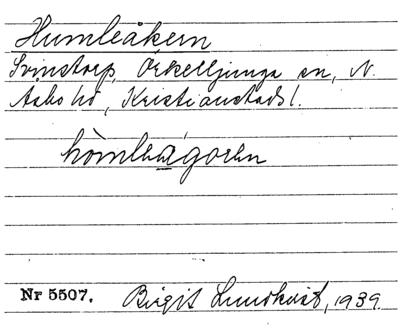 Humleåkern
Svinstorp, Örkelljunga sn, N.
Åsbo hd, Kristianstads l.
hòmleágoren
Nr 5507. Birgit Lundkvist, 1939.